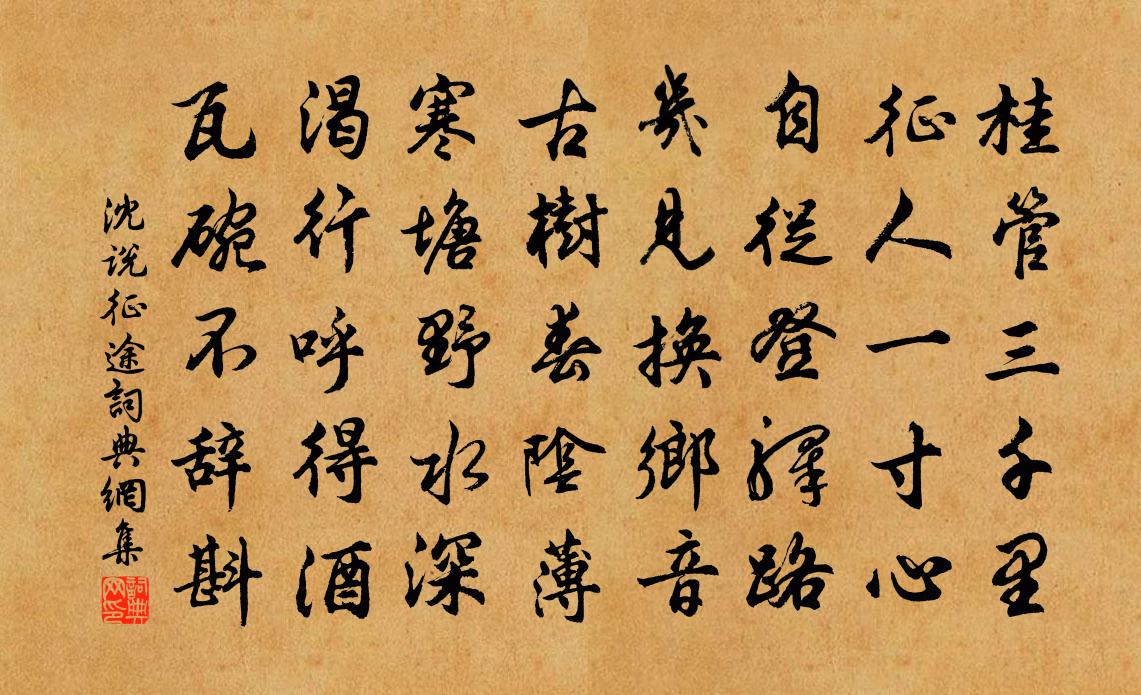 桂管三千里
征人一寸心
自從登驛路
幾見換鄉音
古樹春陰薄
寒塘野水深
渴行呼得酒
瓦碗不辞斟
沈说征途詞典網集
詞典网印